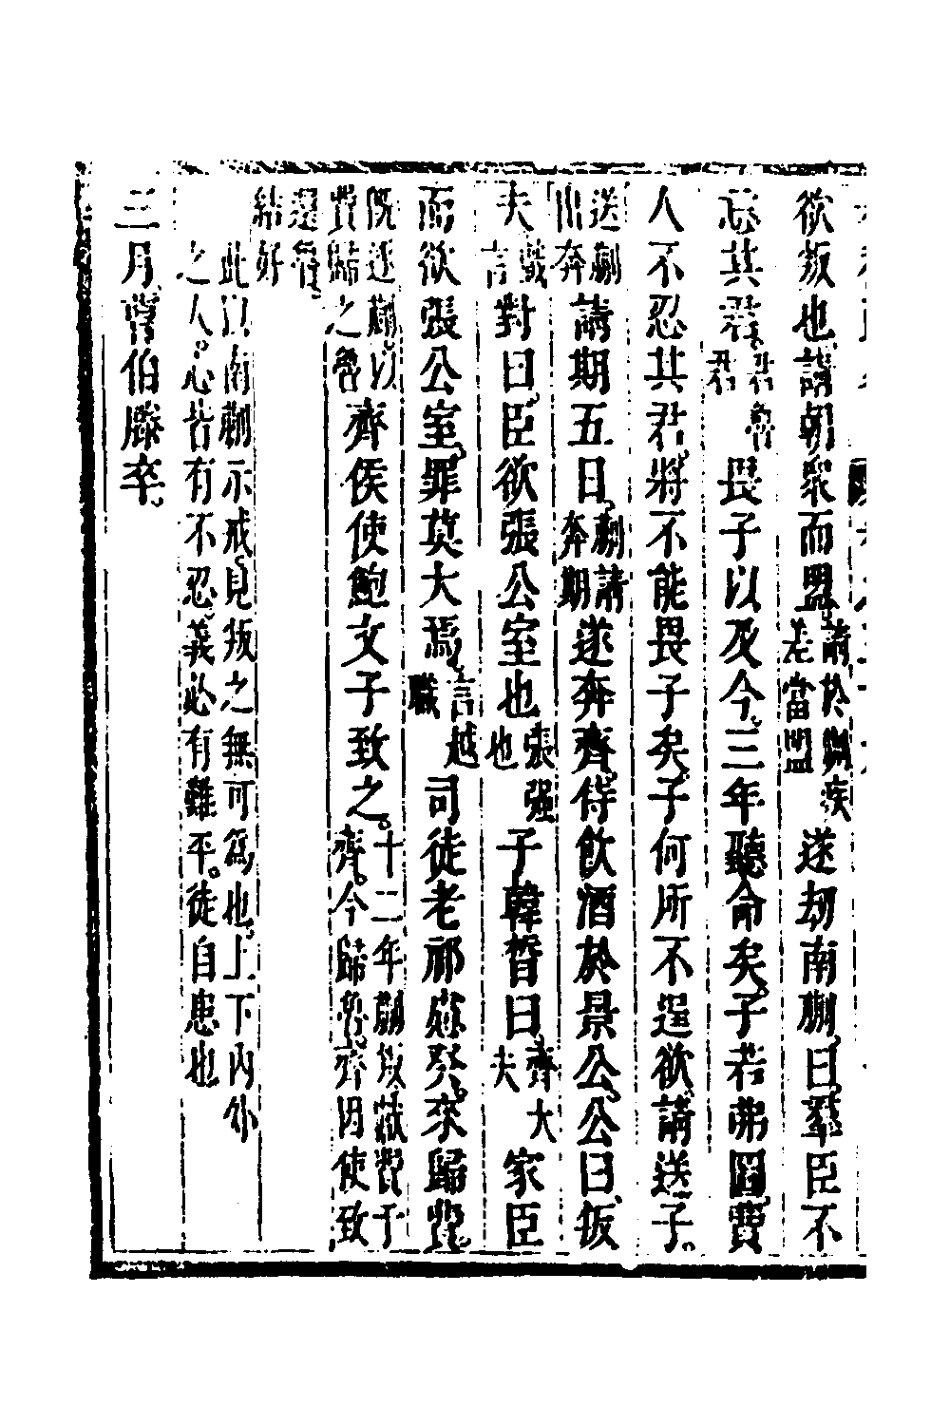 欲叛也請朝衆而盟請於蒯疾差當盟遂刼南蒯曰羣臣不
忘其君君君魯畏子以及今三年聽命矣子若弗圖費
人不忍其君將不能畏子矣子何所不逞欲請送子
送蒯出奔請期五日蒯請奔期遂奔齊侍飲酒於景公公曰叛
夫戲言對曰臣欲張公室也張强也子韓晳曰齊大夫家臣
而欲張公室罪莫大焉言越職司徒老祁慮癸來歸費
旣逐蒯以費歸之魯齊侯使鮑文子致之十二年蒯叛歲費于齊今歸魯齊因使致
還魯結好
此以南蒯示戒見叛之無可爲也上下內外
之人心皆有不忍義必有難平徒自患也
三月曹伯滕卒